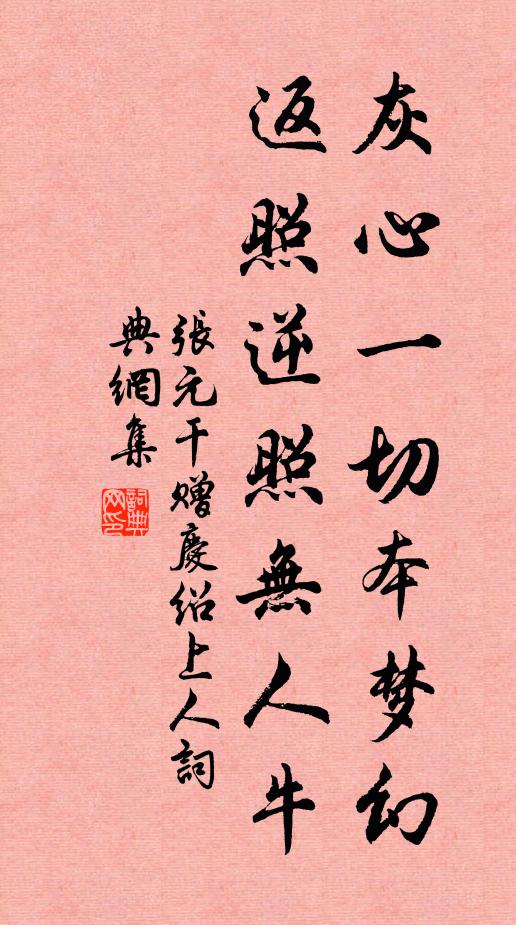 灰心一切本梦幻
返照逆照無人牛
張元干赠慶绍上人詞
典網集
詞典网印